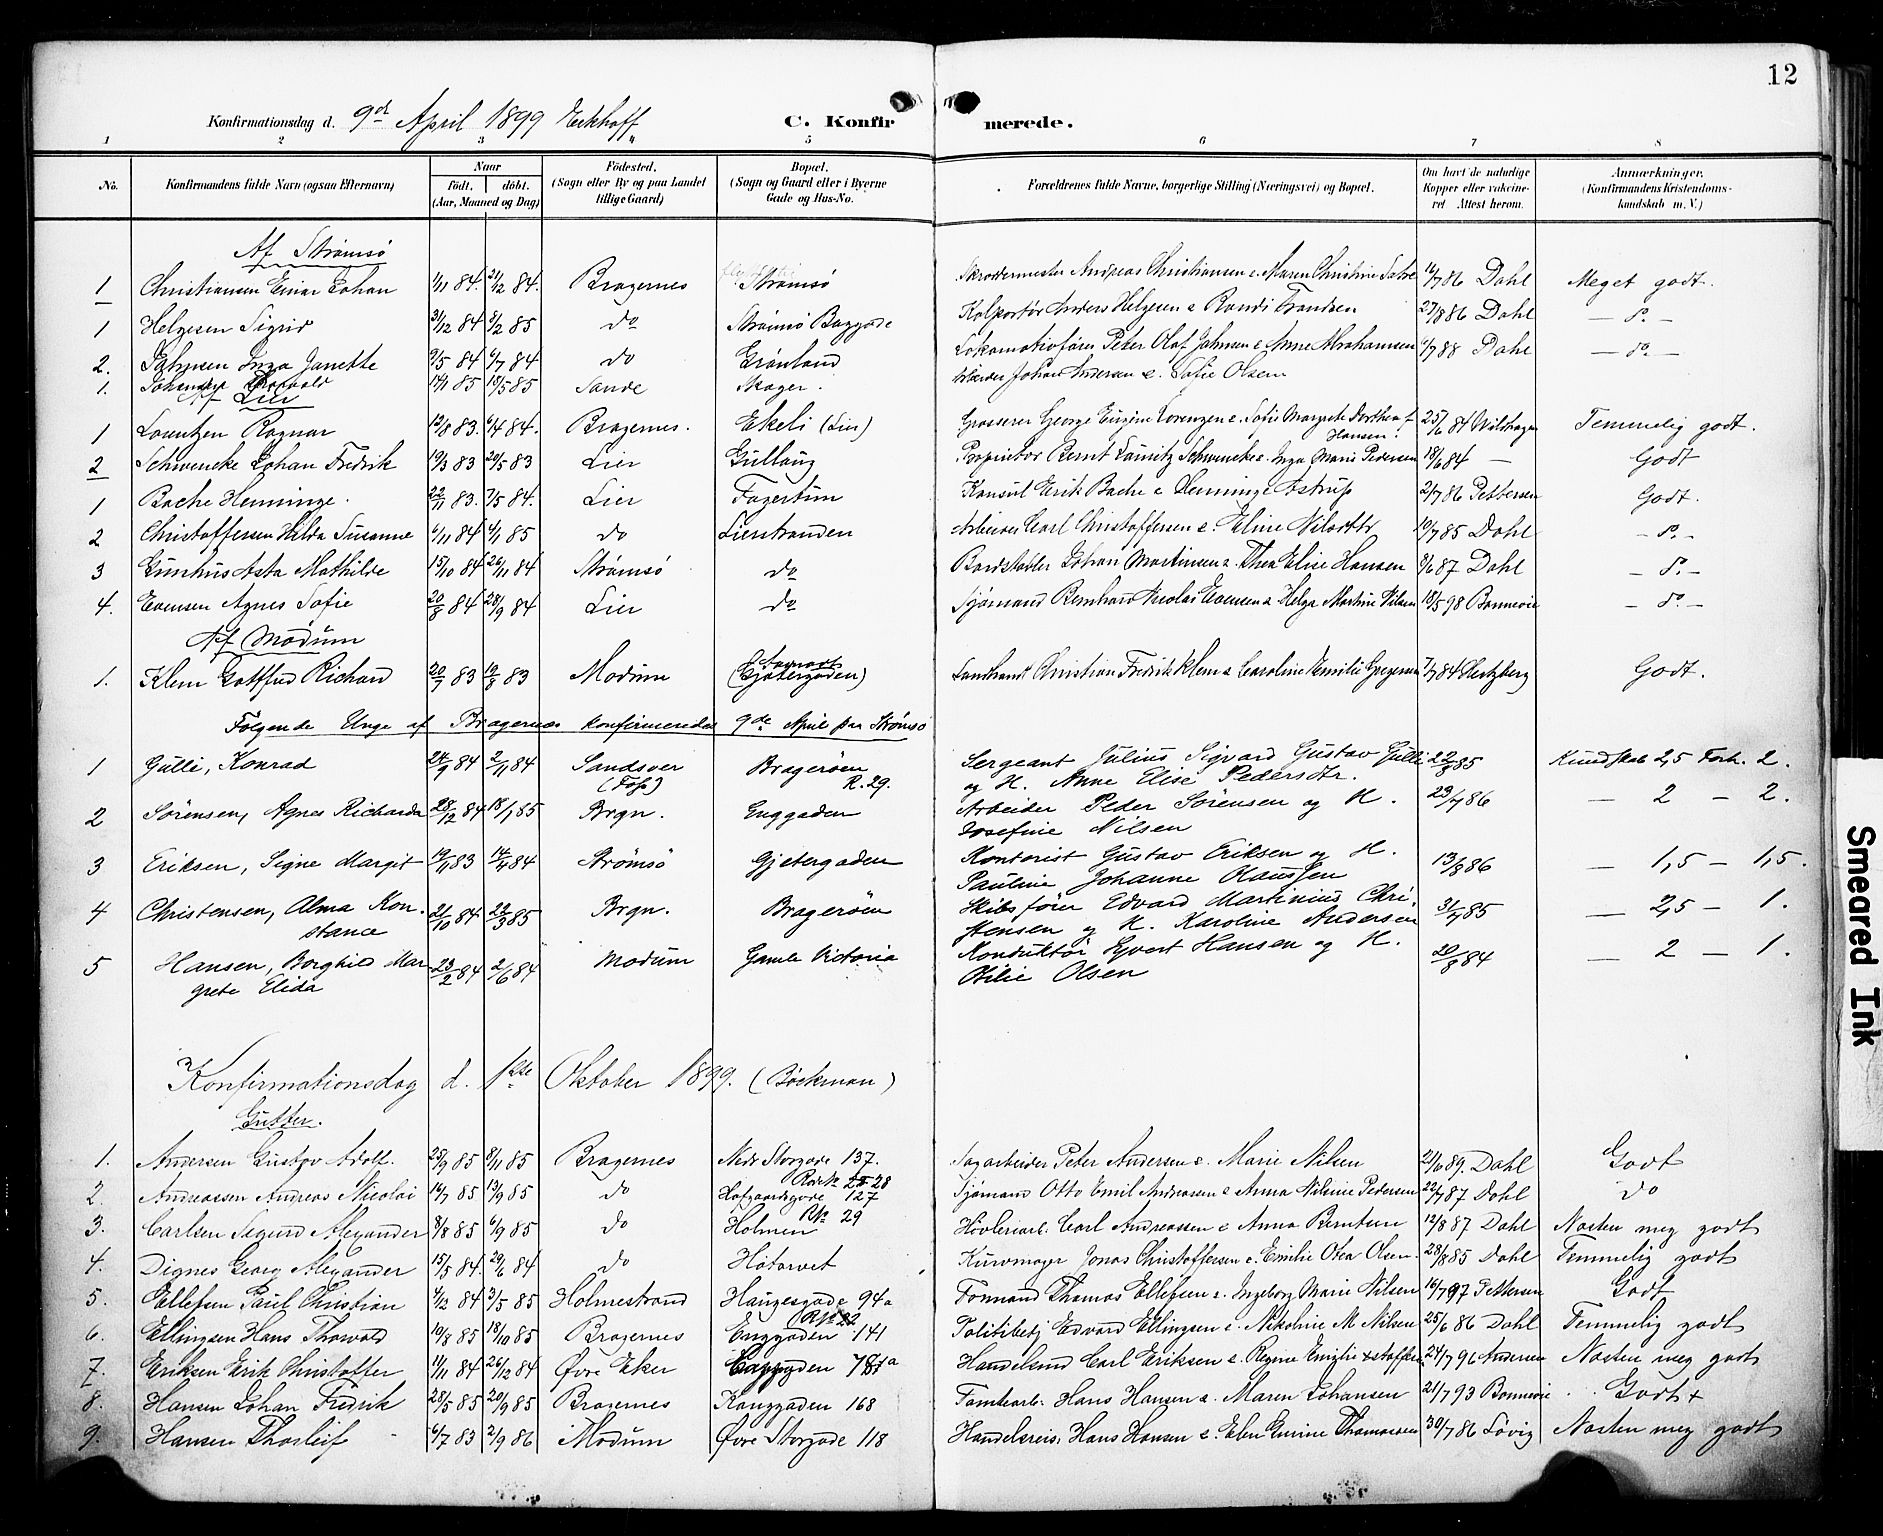 12
Konfirmationsdag d. 9de April 1899 Eckhoff C. Konfirmerede.
1 2 3 4 5 6 7 8
No. Konfirmandens fulde Navn (ogsaa Efternavn) Naar født. døbt. (Aar, Maaned og Dag) Fødested. (Sogn eller By og paa Landet tillige Gaard) Bopæl. (Sogn og Gaard eller i Byerne Gade og Hus-No. Forældrenes fulde Navne, borgerlige Stilling (Næringsvei) og Bopæl. Om havt de naturlige Kopper eller vakcineret Attest herom. Anmærkninger. (Konfirmandens Kristendomskundskab m. V.)
Af Strømsø
1 Christiansen Einar Johan 1/11 84. 21/12 84. Bragernes Strømsø Skræddermester Andreas Christiansen e. Maren Christine 14/7 86 Dahl Meget godt.
1 Helgesen Sigrid 31/12 84 8/2 85 do Strømsø Baggade Kolportør Anders Helgesen e Randi Frandsen 27/8 86 Dahl — do —
2. Jahnsen Inga Janette 9/5 84 6/7 84 do Grønland Lokomotivfører Peter Olaf Jahnsen e Anne Abrahamsen 6/7 88 Dahl — do —
1. Johansen Thorvald 85 85 Sande Skoger. Arbeider Johan Andersen e. Sofie Olsen
Af Lier
1 Lorentzen Ragnar 12/8 83. 6/4 84. Bragernes. Ekeli (Lier) Grosserer George Eugen Lorenzen e. Sofie Margrete Dorthea f. Hansen. 25/6 84 Wildhagen Temmelig godt.
2 Schwencke Johan Fredrik 19/3 83 20/5 83 Lier Gullaug Proprietør Bernt Lauritz Schwencke e. Inga Marie Pedersen 18/6 84 — Godt
1 Bache Henninge. 22/11 83. 7/5 84. Lier Fagertun Konsul Erik Bache e Henninge Astrup 2/7 86 Pettersen Godt.
2 Christoffersen Hilda Susanne 6/11 84 4/1 85 do Lierstranden Arbeider Carl Christoffersen e. Eline Nilsdtr 10/7 85 Dahl — do —
3 Gunhus Asta Mathilde 15/10 84 26/11 84 Strømsø do Bordstabler Johan Martinsen e. Thea Elise Hansen 8/6 87 Dahl — do —
4. Evensen Agnes Sofie 20/8 84 28/9 84 Lier do Sjømand Bernhard Nicolai Evensen e Helga Martine Nilsen 18/5 98 Bonnevie — do —
Af Modum
1. Klem Gottfred Richard 20/7 83 12/8 83 Modum (Gjetergaden) Landhandl Christian Fredrik Klem e Caroline Emilie Gregersen 7/7 84 Hertzberg Godt.
Følgende Unge af Bragernes konfirmeredes 9de April paa Strømsø
1 Gulli, Konrad 24/9 84 2/11 84 Sandsver (Foss) Bragerøen R. 29. Sergeant Julius Sigvard Gustav Gulli og H. Anne Elise Pedersdtr. 22/8 85 Kundskab 2,5 Forh. 2.
2 Sørensen, Agnes Richarda 28/12 84 18/1 85 Brgn. Enggaden Arbeider Peder Sørensen og H. Josefine Nilsen 23/7 86 — 2 — 2.
3 Eriksen, Signe Margit 19/11 83 14/4 84 Strømsø Gjetergaden Kontorist Gustav Eriksen og H. Pauline Johanne Olaussen 13/8 86 — 1,5 — 1,5.
4 Christensen, Alma Konstance 21/10 84 22/3 85 Brgn. Bragerøen Skibsfører Edvard Martinius Christensen og H. Karoline Andersen 31/7 85 — 2,5 — 1.
5 Hansen, Borghild Margrete Elida 23/2 84 2/6 84 Modum Gamle Victoria Konduktør Syvert Hansen og H. Otilie Olsen 20/8 84 — 2 — 1.
Konfirmationsdag d. 1ste Oktober 1899. (Bøckman)
Gutter.
1. Andersen Gustav Adolf. 25/9 85 8/11 85 Bragernes Nedr Storgade 137. Sagarbeider Peter Andersen e. Marie Nilsen 21/6 89. Dahl Godt
2. Andreassen Andreas Nicolai 16/7 85 13/9 85 do Hofgaardsgade 127 Sjømand Otto Emil Andreasen e Anna Nilsine Pedersen 22/7 87 Dahl do
3. Carlsen Sigurd Alexander 8/8 85 6/9 85 do Holmen 29 Høvleriarb. Carl Andreassen e Anna Berntsen 12/8 87 Dahl Næsten meg godt
4. Dignes Georg Alexander 15/5 84. 29/6 84 do Høtorvet Kurvmager Jonas Christoffersen e. Emilie Otea Olsen. 28/8 85 Dahl Temmelig godt
5. Ellefsen Paul Christian 4/12 84 3/5 85 Holmestrand Haugesgade 94a Formand Thomas Ellefsen e. Ingeborg Marie Nilsen 16/7 97 Pettersen Godt
6. Ellingsen Hans Thorvald 19/8 85 18/10 85 Bragernes Enggaden 141 Politibetj Edvard Ellingsen e. Nikoline M Nilsen 25/6 86 Dahl Temmelig godt
7. Eriksen Erik Christoffer 11/11 84 26/12 84 Øvre Eker Handelsmd Carl Eriksen e. Regine Emilie 24/7 96 Andersen Næsten meg godt
8. Hansen Johan Fredrik 28/5 85 20/9 85 Bragernes Konggaden 168 Tomtearb. Hans Hansen e. Maren Johansen 21/7 93 Bonnevie Godt +
9. Hansen Thorleif 6/7 83 2/9 86 Modum Øvre Storgade 118 Handelsreis. Hans Hansen e. Elen Gurine Thomassen 30/7 86 Løvig Næsten meg godt
Smeared Ink